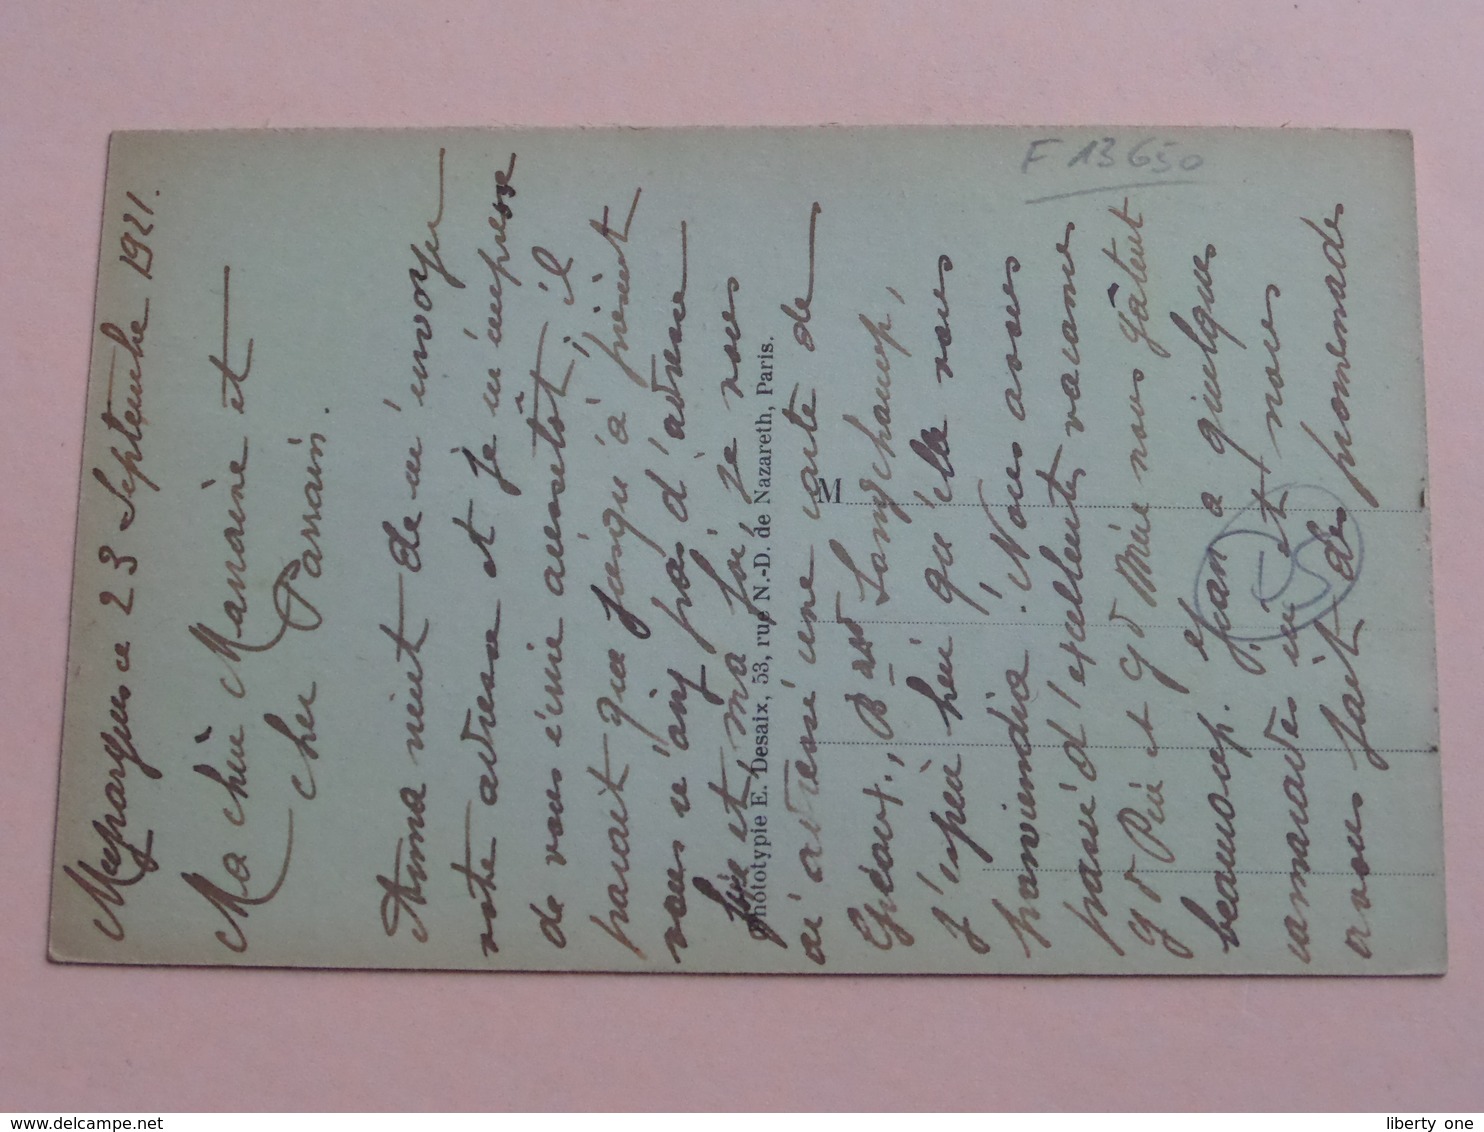 Meyrargues ce 23 Septembre 1921.
Ma chère Marraine et
cher Parrain.
Anna vient de m'envoyer
votre adresse et je m'empresse
de vous écrire aussitôt, il
parait que jusqu'à présent
vous n'avez pas d'adresse
fixe et ma foi je vous
ai adressé une carte de
Bard Longchamp,
j'espère qu'elle vous
parviendra. Nous avons
passé d'excellentes vacances
gd Père et gd Mère nous gâtent
beaucoup. Jean a quelques
camarades ici et nous
avons fait des promenades
Phototypie E. Desaix, 53, rue N.-D. de Nazareth, Paris.
M
F 13650
liberty one